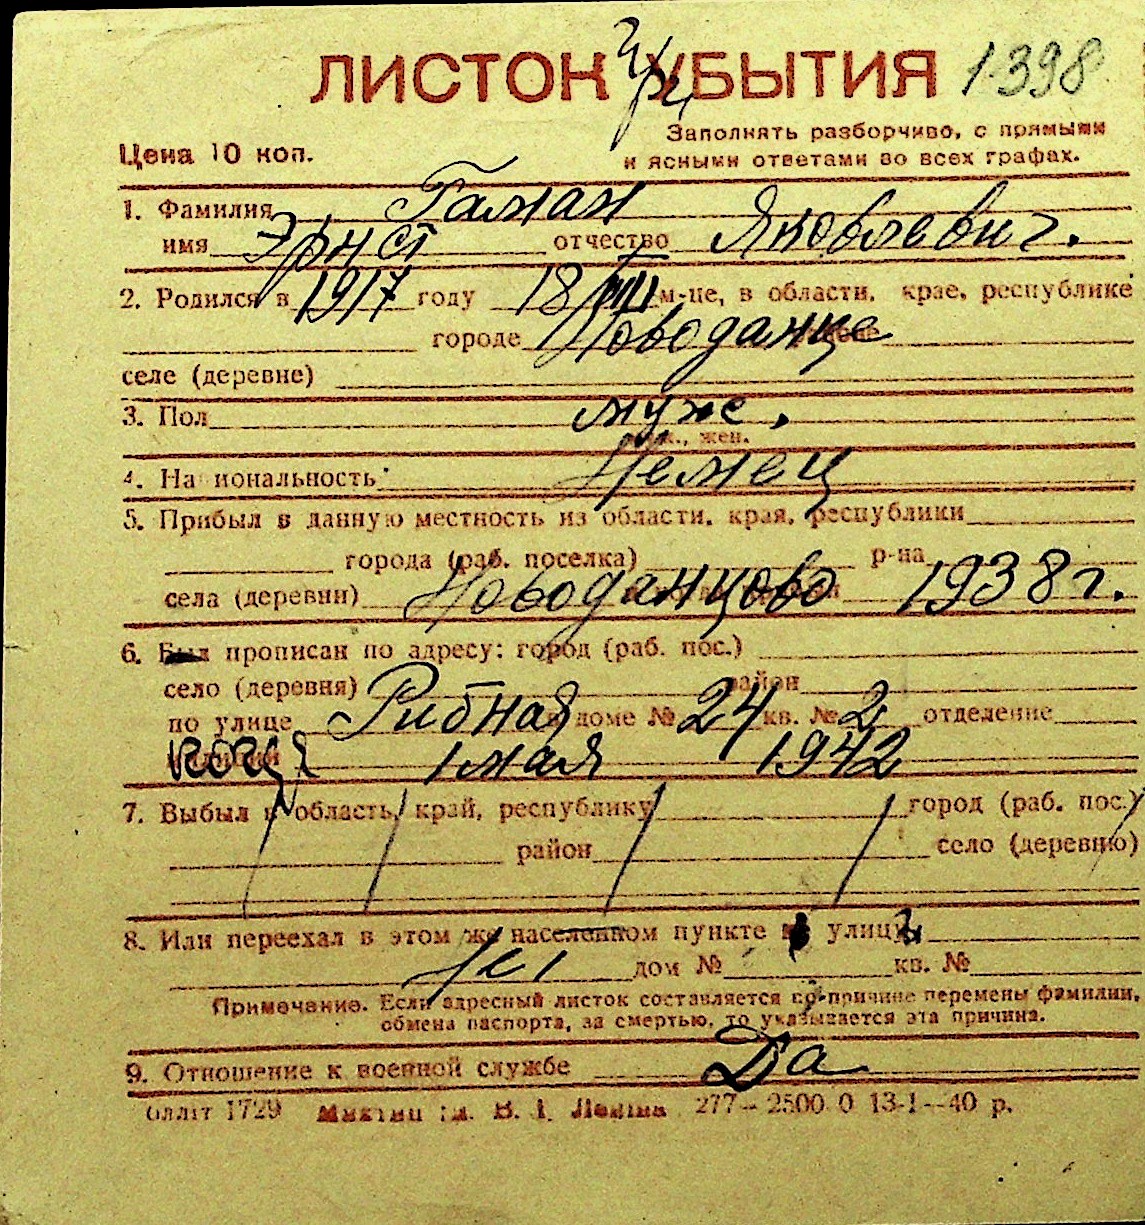 ЛИСТОК УБЫТИЯ 1398
Заполнять разборчиво, с прямыми
Цена 10 коп. и ясными ответами во всех графах.
1. Фамилия Гаман
имя Эрнст отчество Яковлевич.
2. Родился в 1917 году 18/VIII м-це, в области, крае, республике
городе Новоданце
селе (деревне)
3. Пол муже.
муж., жен.
4. Национальность Немец
5. Прибыл в данную местность из области, края, республики
города (раб. поселка) р-на
села (деревни) Новоданцово 1938 г.
6. Был прописан по адресу: город (раб. пос.)
село (деревня) район
по улице Рибная доме № 24 кв. № 2 отделение
милиции 1 мая 1942
7. Выбыл в область, край, республику город (раб. пос.)
район село (деревню)
8. Или переехал в этом же населенном пункте улицу
Нет дом № кв. №
Примечание. Если адресный листок составляется по причине перемены фамилии,
обмена паспорта, за смертью, то указывается эта причина.
9. Отношение к военной службе Да
1729 В. І. Леніна 277—2500 0 13-1—40 р.